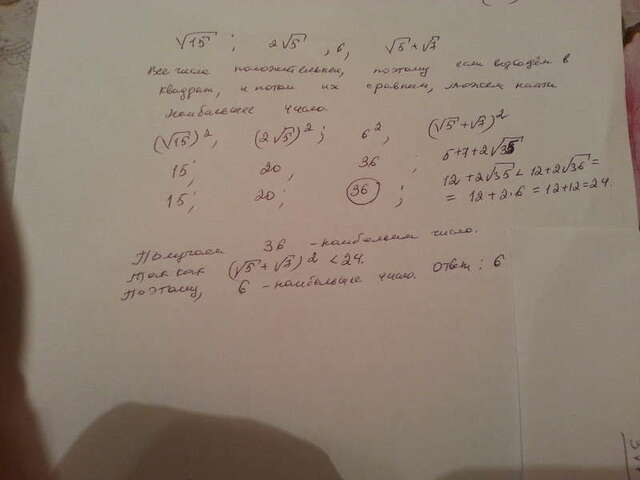 √15 ; 2√5 , 6, √5+√7
Все числа положительные, поэтому если возведём в
квадрат, и потом их сравним, можем найти
наибольшее число
(√15)², (2√5)²; 6², (√5+√7)²
15; 20, 36 , 5+7+2√35
15; 20; 36 ; 12+2√35 < 12+2√36 =
= 12+2·6 = 12+12=24.
Получаем 36 - наибольшим число.
так как (√5+√7)² < 24.
Поэтому, 6 - наибольшее число. Ответ: 6